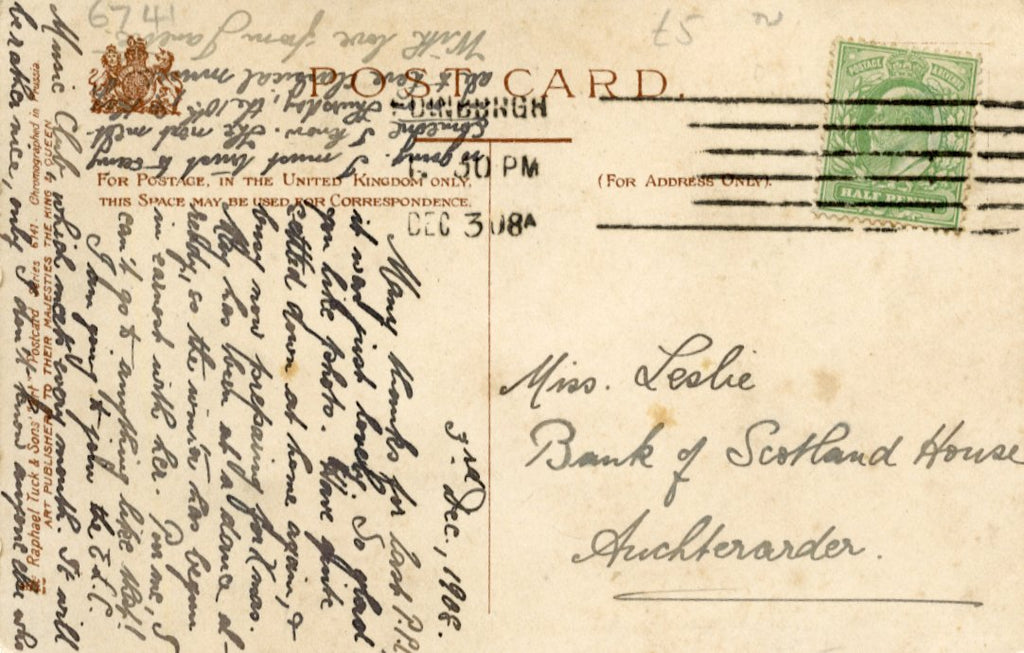 6741
£5
POST CARD.
FOR POSTAGE, IN THE UNITED KINGDOM ONLY,
THIS SPACE MAY BE USED FOR CORRESPONDENCE.
(FOR ADDRESS ONLY).
EDINBURGH
30 PM
DEC 3 08
POSTAGE & REVENUE
HALF PENNY
Miss. Leslie
Bank of Scotland House
Auchterarder.
3rd Dec., 1908.
Many thanks for last P.P.C.
it was just lovely. So glad
you like photo. Have quite
settled down at home again, &
busy now preparing for Xmas.
May has been at a dance al-
ready, so the winter has begun
in earnest with her. Poor me, I
can't go to anything like that!
I am going to join the E.L.C.
Music Club which meets every month. It will
be rather nice, only I don't know anyone else who
is going. I must trust to seeing
someone I know. The next meet
Thursday, the 10th
classical music
With love from
Raphael Tuck & Sons' "Art" Postcard Series 6741. Chromographed in Prussia.
ART PUBLISHERS TO THEIR MAJESTIES THE KING & QUEEN